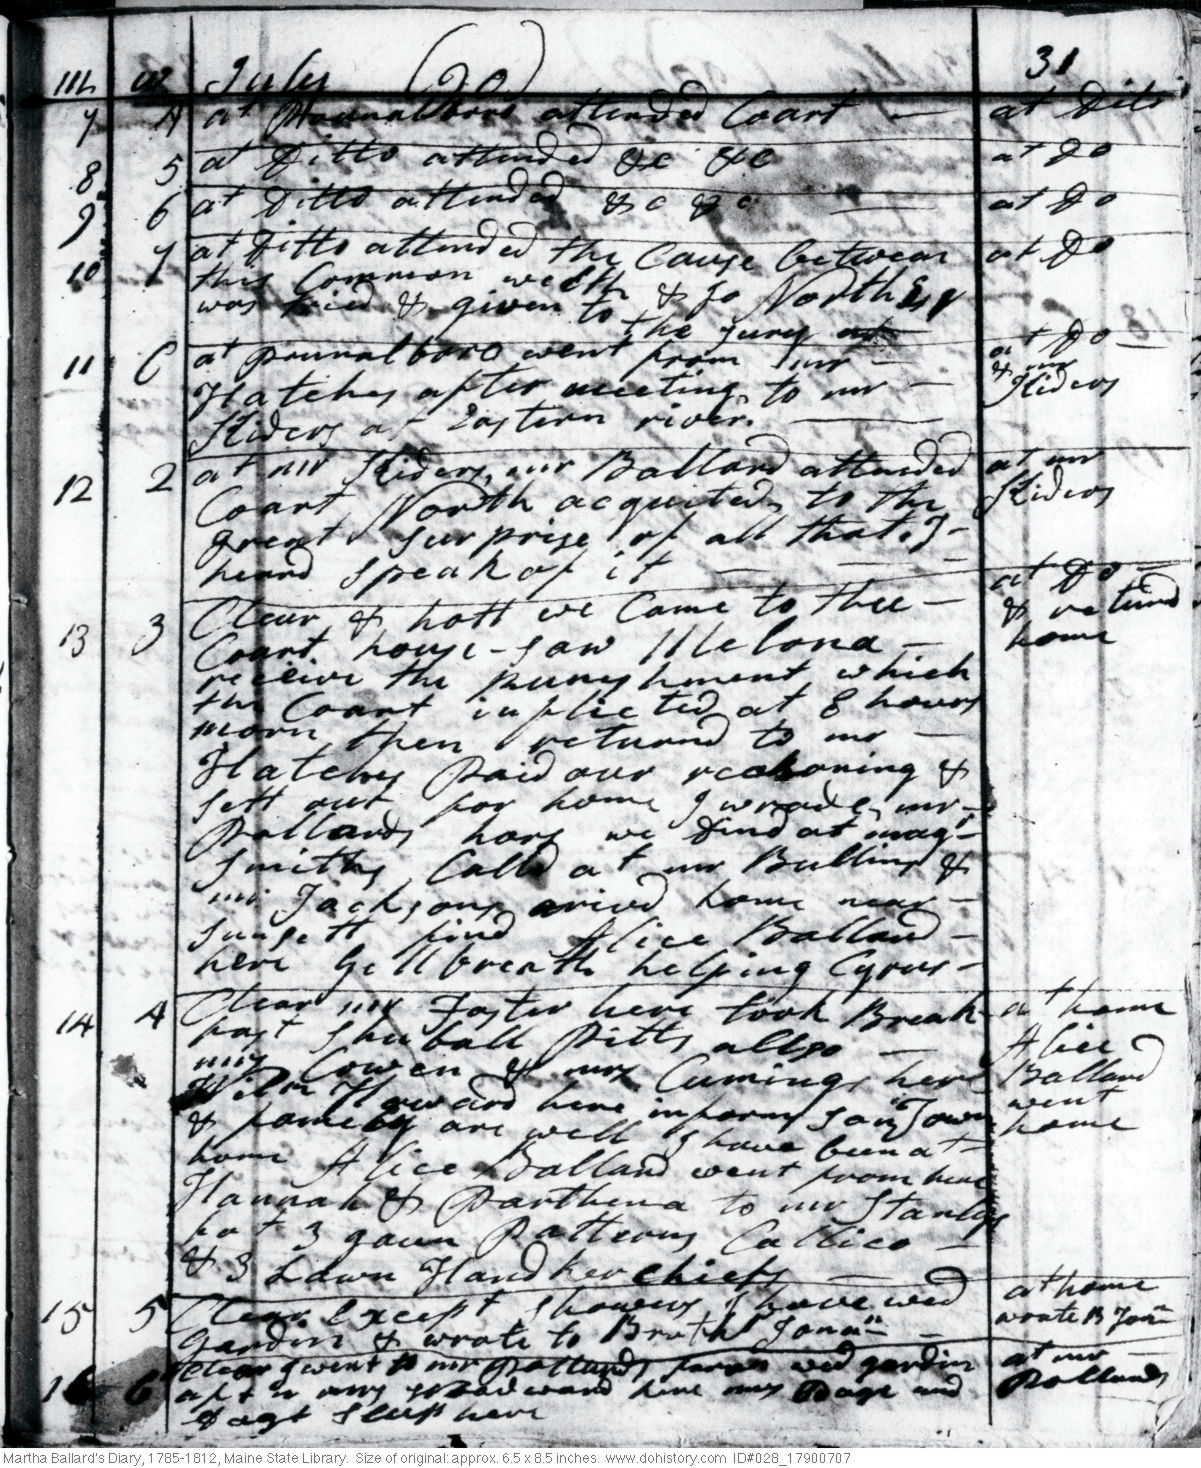 M W July (90) 31
7 4 at Pownalboro attended Coart — at Dito
8 5 at Ditto attended &c &c at Do
9 6 at Ditto attended &c &c — at Do
10 7 at Ditto attended the Cause between at Do
this Common welth & Jo North Esqr
was tried & given to the jury
11 C at pounalboro went from mr — at Do —
Hatches after meeting to mr — & mr
Kiders at Eastern river. — Kiders
12 2 at mr Kiders, mr Ballard attended at mr
Coart, North acquited, to the Kiders
great surprise of all that I —
heard speak of it — — —
13 3 Clear & hott we Came to thee — at Do —
Coart house - saw Melona — & returnd
receive the punyshment which home
the Coart inflicted at 8 hours
morn then returnd to mr —
Hatches Paid our reckoning &
sett out for home I wrode mr —
Pollards hors we dind at magr
Smiths, Calld at mr Bullins &
mr Jacksons arivd home near —
sunsett find Alice Ballard —
here Gellbreath helping Cyrus —
14 4 Clear mr Foster here took Break- at home
fast Shuball Pitts allso — Alice
mrs Cowen & mrs Cumings here Ballard
Wilm Howard here informs Saml Town went
& family are well I have been at — home
home Alice Ballard went from here
Hannah & Parthena to mr Stanlys
got 3 goun Patterns Callico —
& 3 Lawn Handkerchiefs —
15 5 Clear, Except showers, I have wed at home
gardin & wrote to Broth Jonan — wrote B Jonan
16 6 Clear I went to mr Pollards farm wed gardin at mr —
after mrs Woodward here mrs Page and Pollards
Dagt sleep here
Martha Ballard's Diary, 1785-1812, Maine State Library. Size of original: approx. 6.5 x 8.5 inches. www.dohistory.com ID#028_17900707